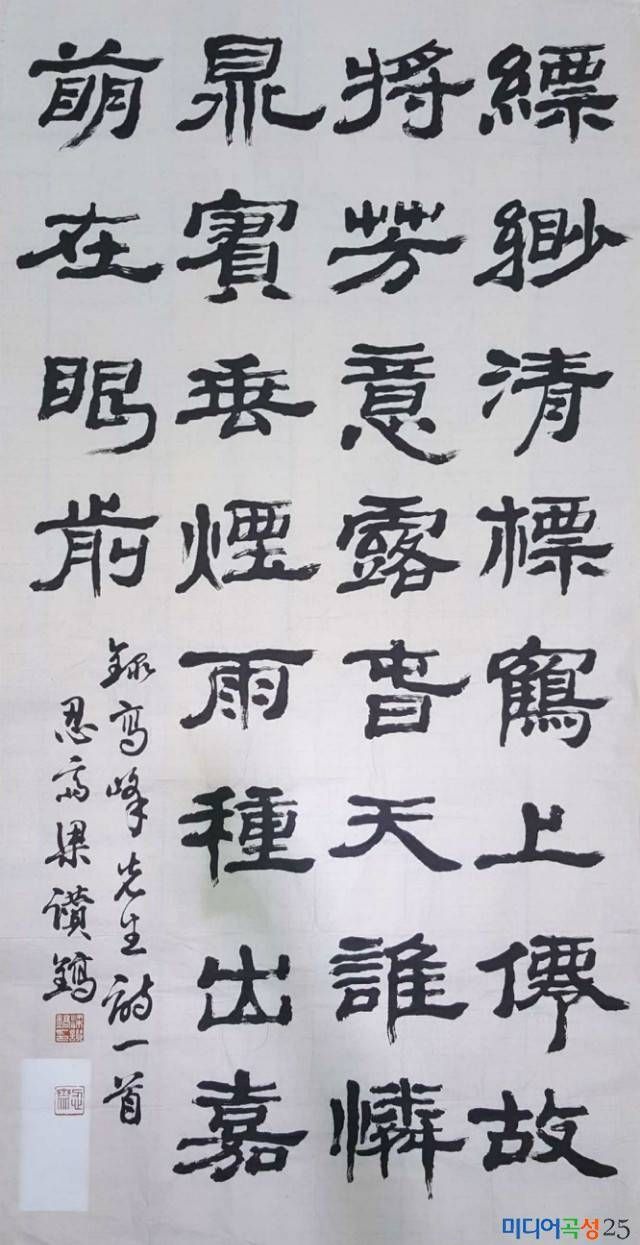 縹緲清標鶴上僊故
將芳意露春天誰憐
鼎實垂煙雨種出嘉
萌在眼前
錄高峰先生詩一首
忍斋梁讃鎬
미디어곡성25